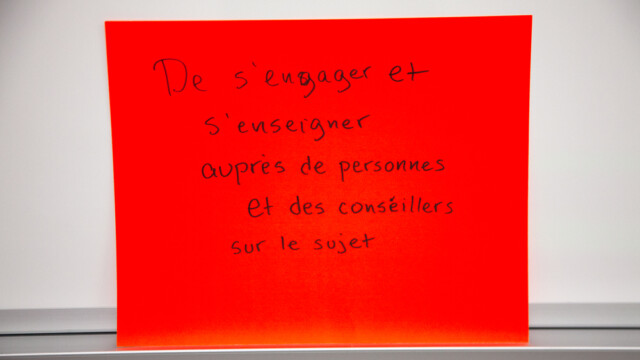 De s'engager et
s'enseigner
auprès de personnes
et des conséillers
sur le sujet